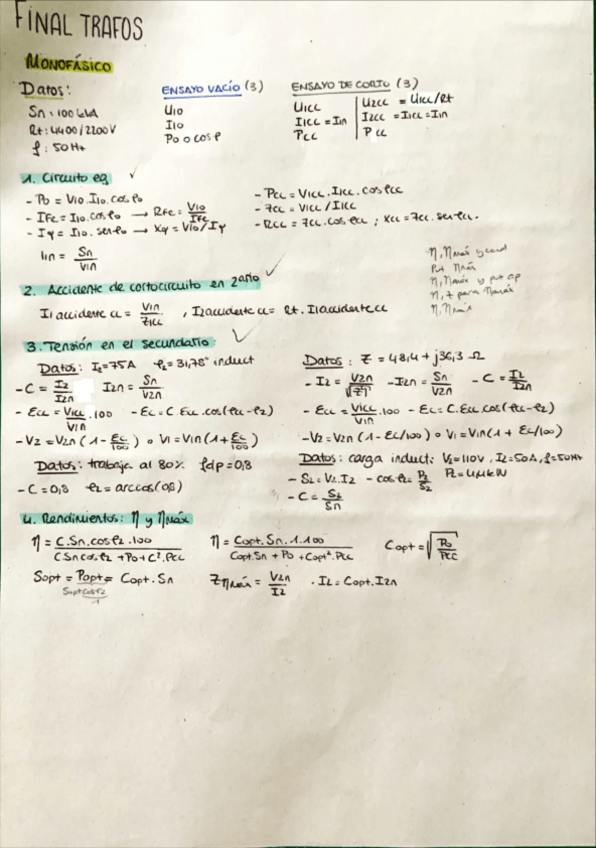 FINAL TRAFOS
MONOFÁSICO
Datos:
Sn = 100 kVA
Rt: 4400/2200V
f: 50Hz
ENSAYO VACÍO (3)
U10
I10
Po o cosφ
ENSAYO DE CORTO (3)
U1cc
I1cc = I1n
Pcc
U2cc = U1cc/Rt
I2cc = I1cc = I1n
Pcc
1. Circuito eq
- Po = V10.I10.cosφo
- Ife = I10.cosφo → Rfe = V10/Ife
- Iφ = I10.senφo → Xφ = V10/Iφ
I1n = Sn/V1n
- Pcc = V1cc.I1cc.cosφcc
- Zcc = V1cc/I1cc
- Rcc = Zcc.cosφcc ; Xcc = Zcc.senφcc.
2. Accidente de cortocircuito en 2ario
I1accidente cc = V1n/Z1cc , I2accidente cc = Rt.I1accidente cc
3. Tensión en el secundario:
Datos: I2=75A φ2=31,78° induct
- C = I2/I2n I2n = Sn/V2n
- Ecc = V1cc/V1n.100 - Ec = C.Ecc.cos(φcc-φ2)
- V2 = V2n(1-Ec/100) o V1 = V1n(1+Ec/100)
Datos: trabaja al 80% fdp=0,8
- C=0,8 φ2=arccos(0,8)
Datos: Z = 48,4 + j36,3 Ω
- I2 = V2n/√(Z)² - I2n = Sn/V2n - C = I2/I2n
- Ecc = V1cc/V1n.100 - Ec = C.Ecc.cos(φcc-φ2)
- V2 = V2n(1-Ec/100) o V1 = V1n(1+Ec/100)
Datos: carga induct: V2=110V, I2=50A, f=50Hz
P2=4,4kW
- S2 = V2.I2 - cosφ2 = P2/S2
- C = S2/Sn
4. Rendimientos: η y ηmáx
η = C.Sn.cosφ2.100/(C.Sn.cosφ2 + Po + C².Pcc)
η = Copt.Sn.1.100/(Copt.Sn + Po + Copt².Pcc)
Copt = √(Po/Pcc)
Sopt = Popt = Copt.Sn
Zηmáx = V2n/I2 · I2 = Copt.I2n